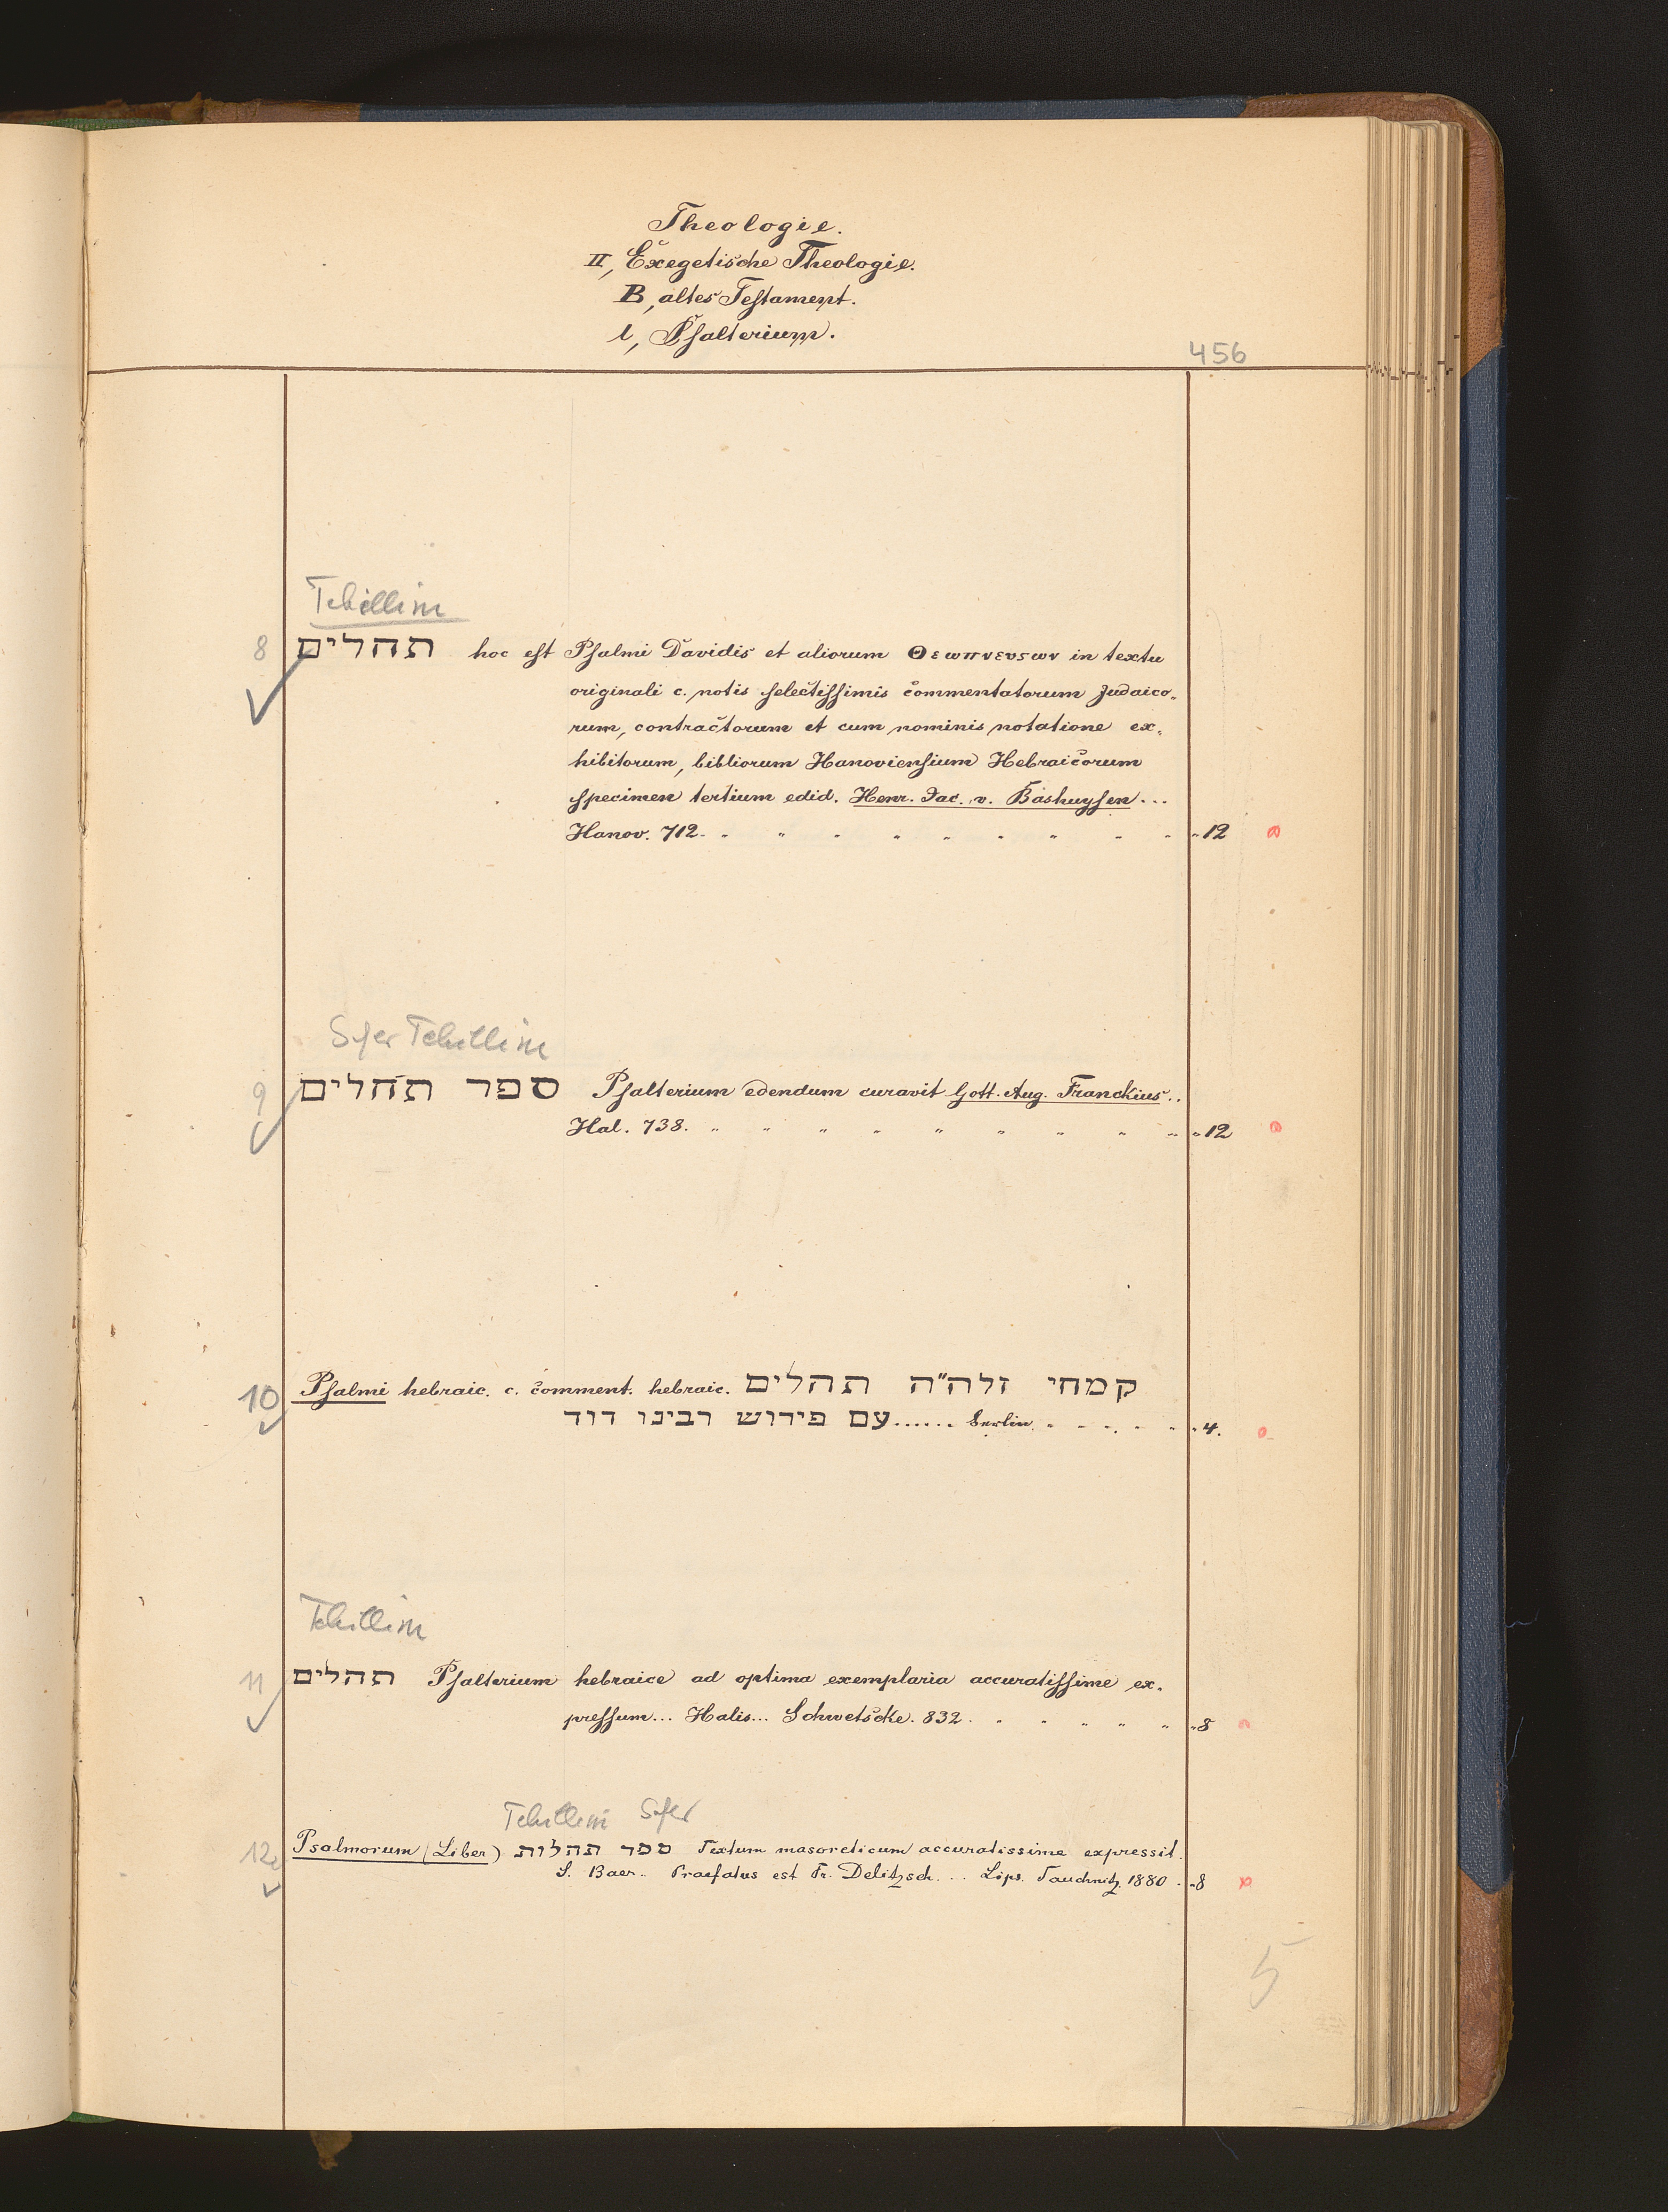 Theologie.
II, Exegetische Theologie.
B, altes Testament.
l, Psalterium.
456
Tehillim
8 תהלים hoc est Psalmi Davidis et aliorum Θεωπνευςων in textu
originali c. notis selectissimis commentatorum Judaico„
rum, contractorum et cum nominis notatione ex„
hibitorum, bibliorum Hanoviensium Hebraicorum
specimen tertium edid. Henr. Jac. v. Bashuysen...
Hanov. 712. " " " " " " " " " "12
Sefer Tehillim
9 ספר תהלים Psalterium edendum curavit Gott. Aug. Franckius..
Hal. 738. " " " " " " " " " "12
10 Psalmi hebraic. c. comment. hebraic. קמחי זלה"ה תהלים
עם פירוש רבינו דוד...... Berlin. " " " " " "4.
Tehillim
11 תהלים Psalterium hebraice ad optima exemplaria accuratissime ex„
pressum... Halis... Schwetscke. 832. " " " " " "8
Tehillim Sefer
12 Psalmorum (Liber) ספר תהלות Textum masoreticum accuratissime expressit.
S. Baer.. Praefatus est Fr. Delitzsch. ... Lips. Tauchnitz. 1880. "8
5